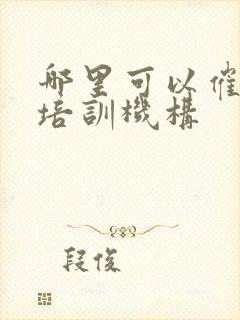 哪里可以催
培訓機構
段俊